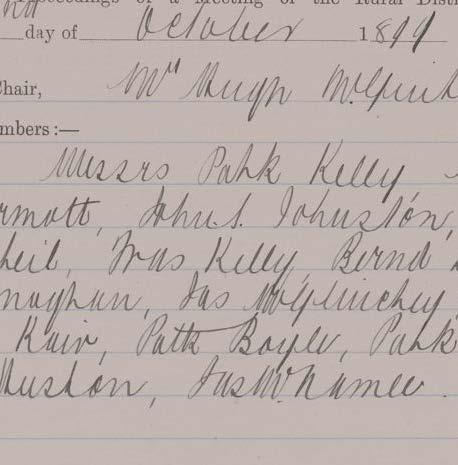 Proceedings of a Meeting of the Rural Distri
nd day of October 1899
Chair, Mr Hugh McGlinch
mbers :—
Messrs Patk Kelly
rmott, John S. Johnston,
heil, Fras Kelly, Bernd
naghan, Jas McGlinchey
Kair, Patk Boyle, Patk
Huston, Jas McNamee.